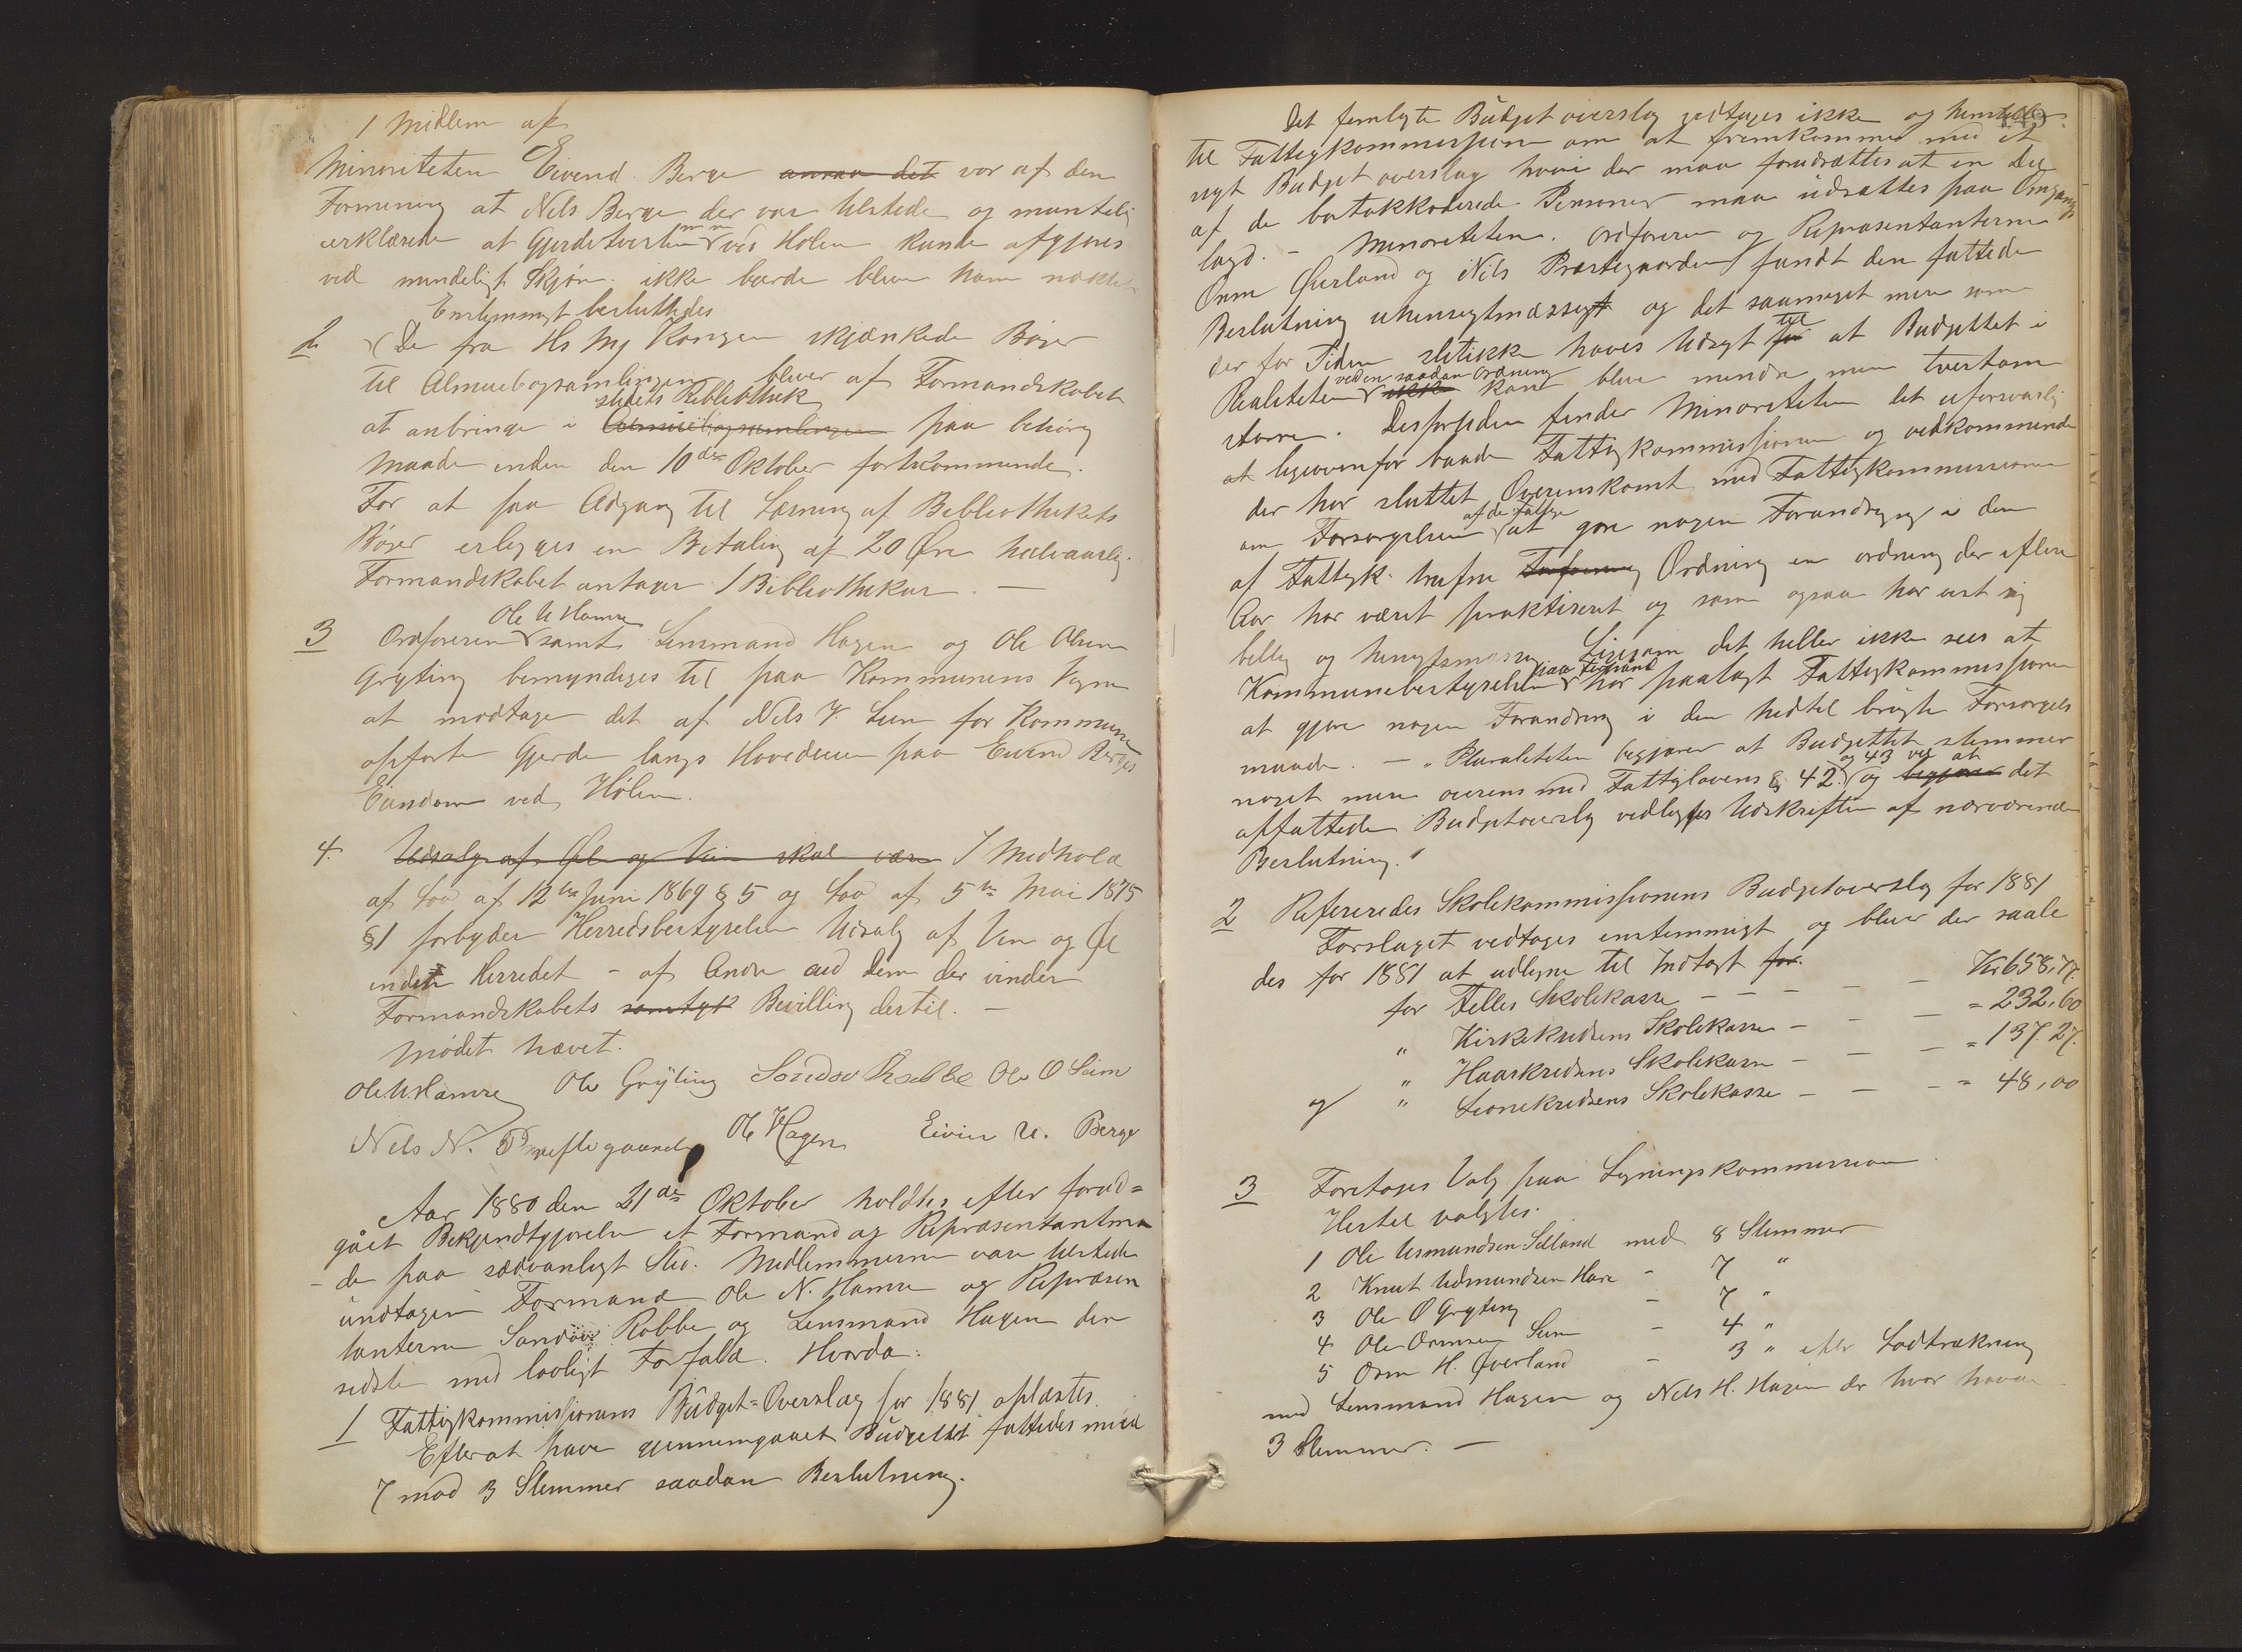 1 Midlem af
Minoriteten Eivend Berge ansaa det var af den
Formening at Nels Berge der var tilstede og muntelig
erklærede at Gjerdetvisten m m ved Hølen kunde afgjøres
ved mindeligt Skjøn ikke burde blive ham nægtet
Enstemmigt besluttedes
2 De fra Hs Mj Kongen skjænkede Bøger
til Almuebogsamlingen bliver af Formandskabet
at anbringe i Almuebogsamlingen stedets Bibliothek paa behørig
Maade inden den 10de Oktober førstkommende.
For at faa Adgang til Læsning af Bibliothekets
Bøger erlægges en Betaling af 20 Øre halvaarlig.
Formandskabet antager 1 Bibliothekar. —
3 Ordføreren Ole N Hamre samt Lensmand Hagen og Ole Olsen
Gryting bemyndiges til paa Kommunens Vegne
at modtage det af Nels V. Sum for Kommunen
opførte Gjerde langs Hovedveien paa Eivend Berges
Eiendom ved Hølen.
4. Udsalg af Øl og Vin skal være I Medhold
af Lov af 12te Juni 1869 § 5 og Lov af 5te Mai 1875
§1 forbyder Herredsbestyrelsen Udsalg af Vin og Øl
inden Herredet - af Andre end dem der vinder
Formandskabets samtyk Bevilling dertil. —
Mødet hævet.
Ole N. Hamre Ole Gryting Sondov Rabbe Ole O Sum
Nels N. Præstegaard O Hagen Eivin N. Berge
Aar 1880 den 21de Oktober holdtes efter forud=
gået Bekjendtgjørelse et Formand og Repræsentantmø
- de paa sædvanligt Sted. Medlemmerne vare tilstede
undtagen Formand Ole N. Hamre og Repræsen
tanterne Sondov Rabbe og Lensmand Hagen den
sidste med lovligt Forfald. Hvorda:
1 Fattigkommissionens Budget-Overslag for 1881 oplæstes.
Efter at have gjennemgaaet Budgettet fattedes med
7 mod 3 Stemmer saadan Beslutning.
Det fremlagte Budgetoverslag vedtages ikke og henstilles
til Fattigkommissionen om at fremkomme med et
nyt Budgetoverslag hvori der maa forudsættes at en Del
af de bortakkorderede Personer maa udsættes paa Omgangs
lægd. - Minoriteten. Ordføreren og Repræsentanterne
Orm Øverland og Nils Præstegaarden fandt den fattede
Beslutning uhensigtmæssigt og det saameget mere som
der for Tiden slet ikke haves Udsigt for til at Budgettet i
Realiteten ikke ved en saadan Ordning kan blive mindre men tvertom
større. Desforuden finder Minoriteten det uforsvarlig
at ligeovenfor baade Fattigkommissionen og vedkommende
der har sluttet Overenskomst med Fattigkommissionen
om Forsørgelsen af de fattige at gøre nogen Forandring i den
af Fattigk. trufne Ordning en ordning der i flere
Aar har været praktiseret og som ogsaa har vist sig
billig og hensigtsmæssig. Ligesom det heller ikke sees at
Kommunebestyrelsen paa Forhånd har paalagt Fattigkommissionen
at gjøre nogen Forandring i den hidtil brugte Forsørgels
maade. - "Pluraliteten begjærer at Budgettet stemmer
noget mere overens med Fattiglovens § 42 og 43 og begjærer ved at det
affattede Budgetoverslag vedlægges Udskriften af nærværende
Beslutning."
2 Refereredes Skolekommissionens Budgetoverslag for 1881
Forslaget vedtages enstemmigt og bliver der saale
des for 1881 at udligne til Indtægt for.
for Felles Skolekasse - - - - - Kr 658,77.
" Kirkekredsens Skolekasse - - - = 232,60
" Haarekredsens Skolekasse - - - = 137.27.
og " Leonekredsens Skolekasse - - - = 48,00
3 Foretoges Valg paa Ligningskommission.
Hertil valgtes.
1 Ole Asmundsen Selland med 8 Stemmer
2 Knut Udmundsen Hare - 7 "
3 Ole O Gryting - 7 "
4 Ole Ormsen Sum - 4 "
5 Orm H. Øverland - 3 " efter Lodtrækning
med Lensmand Hagen og Nels H. Hagen der hver havde
3 Stemmer. —